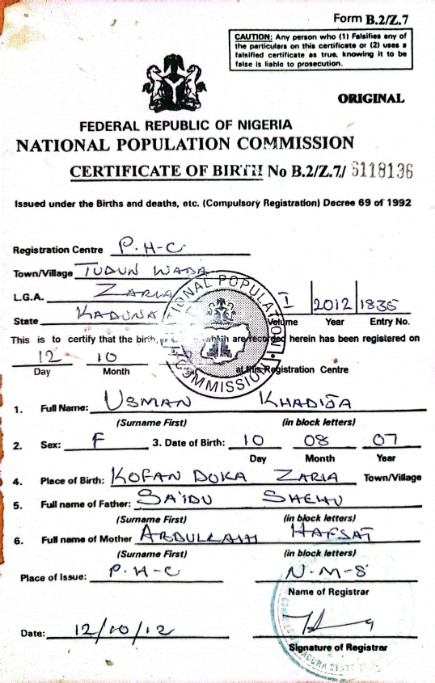 Form B.2/Z.7
CAUTION: Any person who (1) Falsifies any of
the particulars on this certificate or (2) uses a
falsified certificate as true, knowing it to be
false is liable to prosecution.
ORIGINAL
FEDERAL REPUBLIC OF NIGERIA
NATIONAL POPULATION COMMISSION
CERTIFICATE OF BIRTH No B.2/Z.7/ 6118136
Issued under the Births and deaths, etc. (Compulsory Registration) Decree 69 of 1992
Registration Centre P.H.C
Town/Village TUDUN WADA
L.G.A. ZARIA
I 2012 1835
State KADUNA
Volume Year Entry No.
NATIONAL POPULATION COMMISSION
This is to certify that the birth, which are recorded herein has been registered on
12 10 at this Registration Centre
Day Month
1. Full Name: USMAN KHADIJA
(Surname First) (in block letters)
2. Sex: F 3. Date of Birth: 10 08 07
Day Month Year
4. Place of Birth: KOFAN DOKA ZARIA Town/Village
5. Full name of Father: SA'IDU SHEHU
(Surname First) (in block letters)
6. Full name of Mother ABDULLAHI HAFSAT
(Surname First) (in block letters)
Place of Issue: P.H.C N.M.S
Name of Registrar
Date: 12/10/12
Signature of Registrar